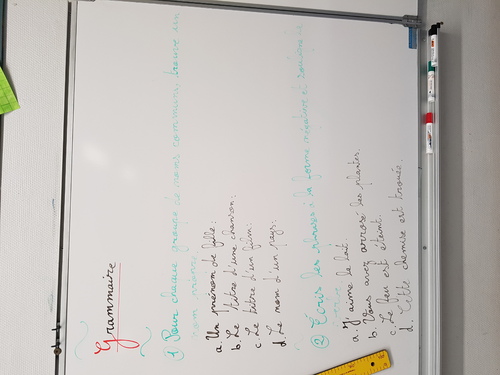 Grammaire
1) Pour chaque groupe de noms communs, trouve un
nom propre.
a. Un prénom de fille :
b. Le titre d'une chanson :
c. Le titre d'un film :
d. Le nom d'un pays :
② Écris les phrases à la forme négative et souligne la
a. J'aime le lait.
b. Vous avez arrosé les plantes.
c. Le feu est éteint.
d. Cette chemise est trouée.